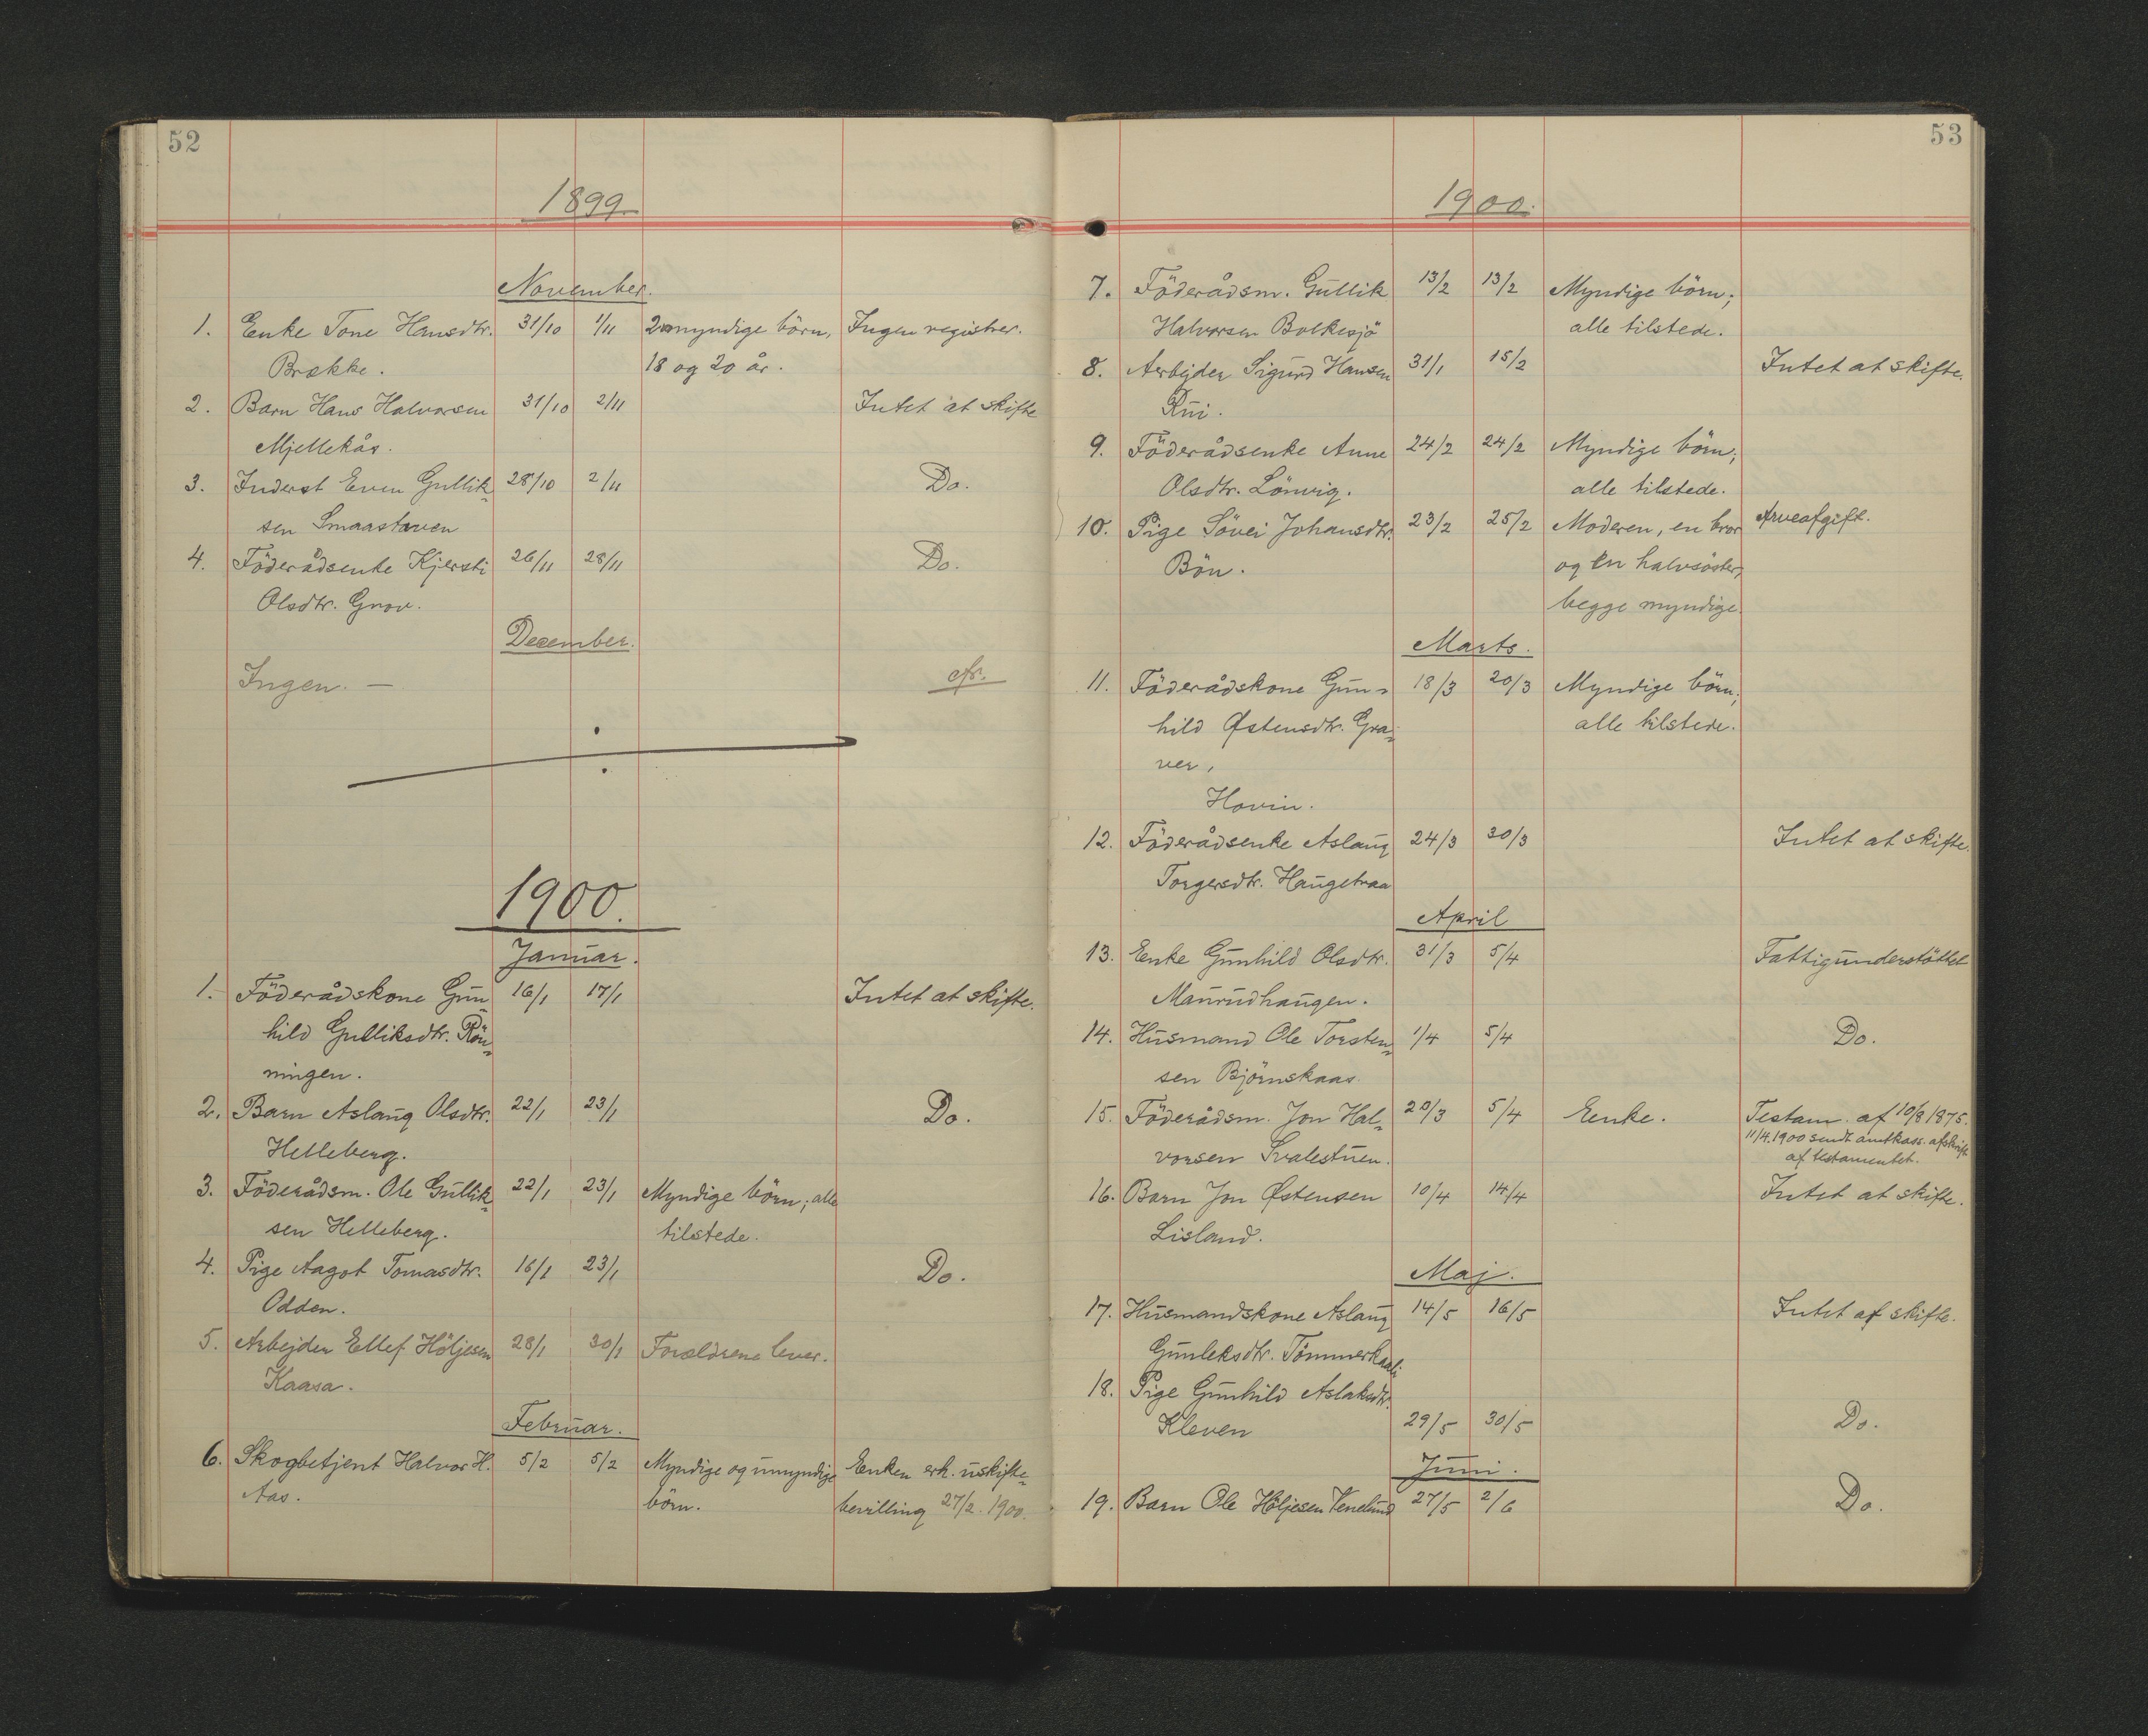 52
1899
November.
1. Enke Tone Hansdtr. 31/10 1/11 2 umyndige börn, Ingen registrer.
Brække. 18 og 20 år.
2. Barn Hans Halvorsen 31/10 2/11 Intet at skifte
Mjellekås.
3. Inderst Even Gullik- 28/10 2/11 Do.
sen Smaastøven
4. Föderådsenke Kjersti 26/11 28/11 Do.
Olsdtr. Grov.
December.
Ingen. —
1900.
Januar.
1. Föderådskone Gun- 16/1 17/1 Intet at skifte.
hild Gulliksdtr. Rön-
ningen.
2. Barn Aslaug Olsdtr. 22/1 23/1 Do.
Helleberg.
3. Föderådsm. Ole Gullik- 22/1 23/1 Myndige börn; alle
sen Helleberg. tilstede.
4. Pige Aagot Tomasdtr. 16/1 23/1 Do.
Odden.
5. Arbejder Ellef Höljesen 28/1 30/1 Forældrene lever.
Kaasa.
Februar.
6. Skogbetjent Halvor H. 5/2 5/2 Myndige og umyndige Enken erh. uskifte-
Aas. börn. bevilling 27/2. 1900.
53
1900.
7. Föderådsm. Gullik 13/2 13/2 Myndige börn;
Halvorsen Bolkesjö alle tilstede.
8. Arbejder Sigurd Hansen 31/1 15/2 Intet at skifte.
Rui.
9. Föderådsenke Anne 24/2 24/2 Myndige börn;
Olsdtr. Lönvig. alle tilstede.
10. Pige Sövei Johansdtr. 23/2 25/2 Moderen, en bror Arveafgift.
Bön. og en halvsöster,
begge myndige.
Marts.
11. Föderådskone Gun- 18/3 20/3 Myndige börn;
hild Østensdtr. Gra- alle tilstede.
ver,
Hovin.
12. Föderådsenke Aslaug 24/3 30/3 Intet at skifte.
Torgersdtr. Haugetraa
April
13. Enke Gunhild Olsdtr. 31/3 5/4 Fattigunderstöttet
Maurudhaugen.
14. Husmand Ole Torsten- 1/4 5/4 Do.
sen Björnskaas.
15. Föderådsm. Jon Hal- 20/3 5/4 Enke. Testam. af 10/8 1875.
11/4.1900 sendt amtkass. afskrift
vorsen Svalestuen. af testamentet.
16. Barn Jon Østensen 10/4 14/4 Intet at skifte.
Lisland.
Maj.
17. Husmandskone Aslaug 14/5 16/5 Intet af skifte.
Gunleksdtr. Tömmerkaali
18. Pige Gunhild Aslaksdtr.
Kleven 29/5 30/5 Do.
Juni.
19. Barn Ole Höljesen Venelund 27/5 2/6 Do.